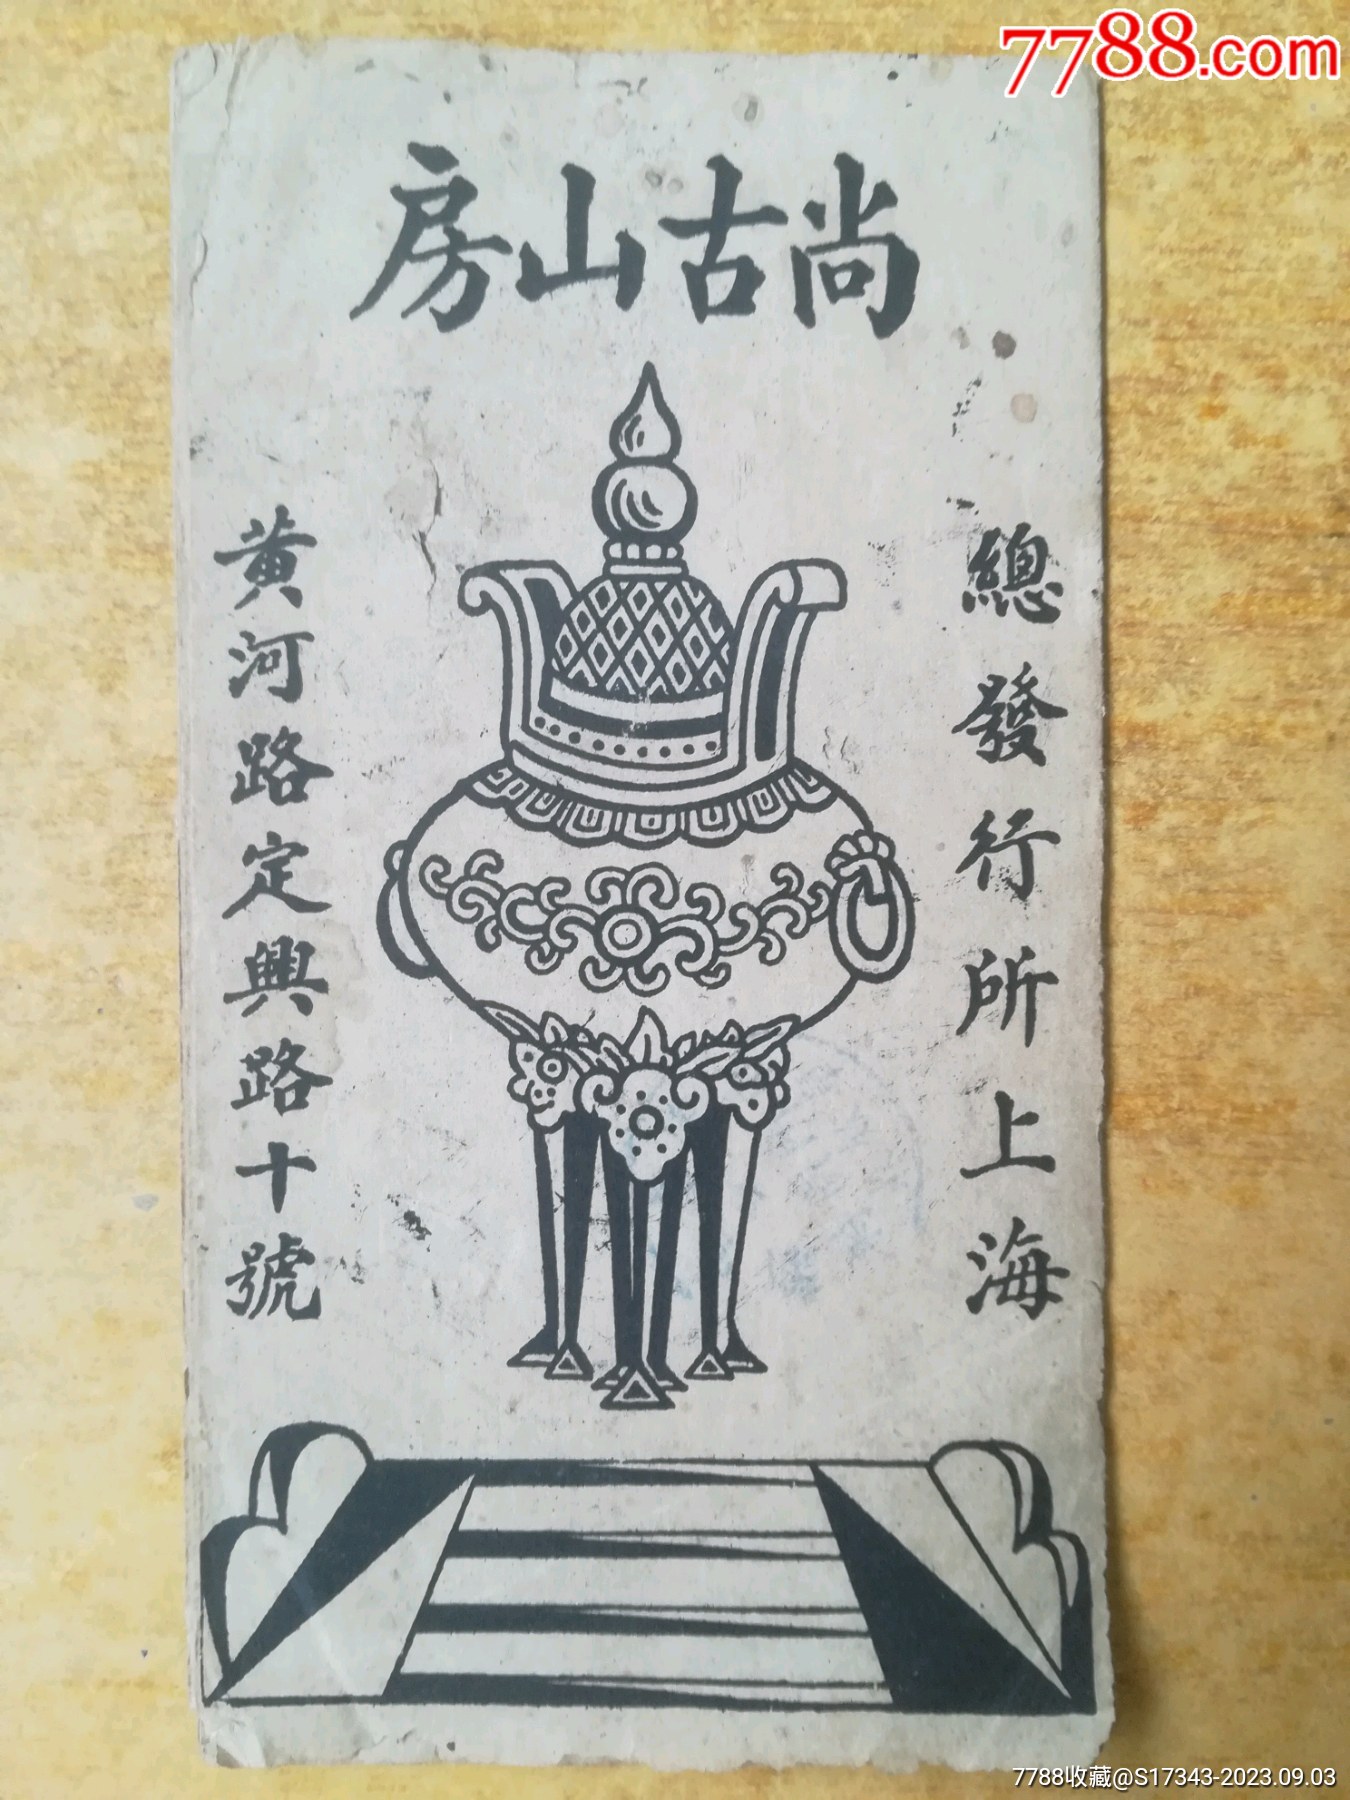 7788.com
尚古山房
總發行所上海
黃河路定興路十號
7788收藏@S17343-2023.09.03